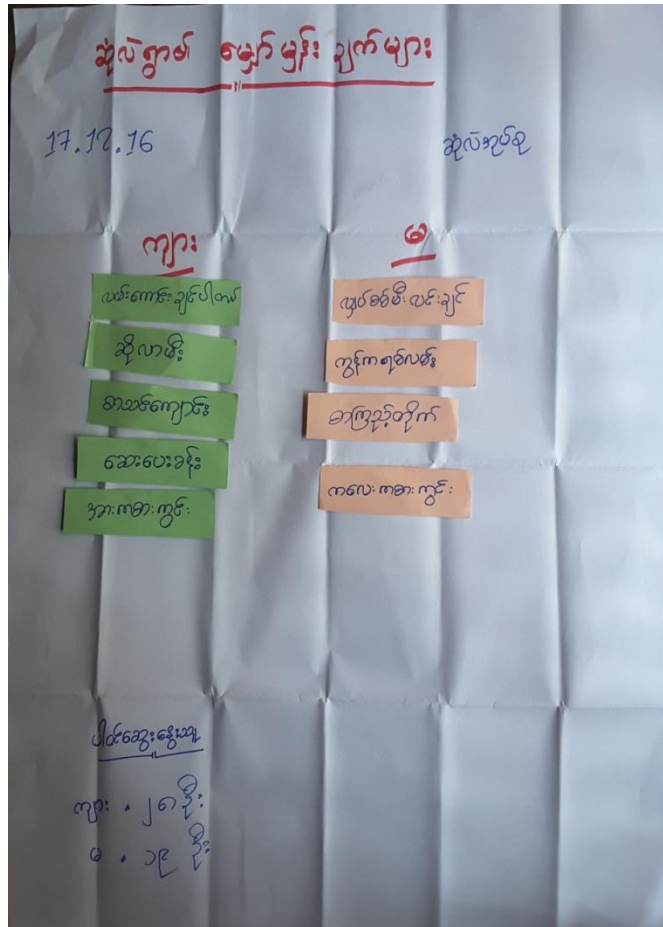 ဆုံလဲရွာ၏ မျှော်မှန်းချက်များ
17.12.16
ဆုံလဲအုပ်စု
ကျား
လမ်းကောင်းချင်ပါတယ်
ဆိုလာမီး
စာသင်ကျောင်း
ဆေးပေးခန်း
အားကစားကွင်း
မ
လျှပ်စစ်မီးလင်းချင်
ကွန်ကရစ်လမ်း
စာကြည့်တိုက်
ကလေးကစားကွင်း
ပါဝင်ဆွေးနွေးသူ
ကျား . ၂၈ ဦး
မ . ၁၉ ဦး